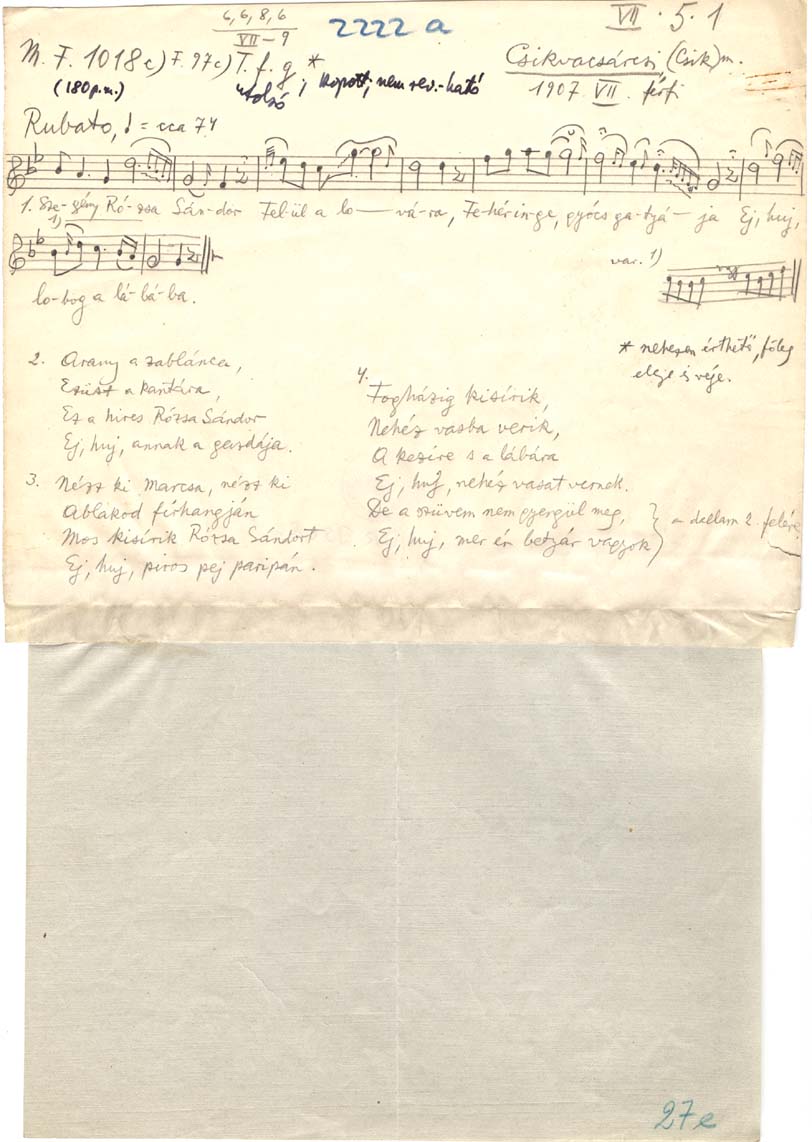 6, 6, 8, 6
VII - 9
2222 a
VII . 5. 1
M. F. 1018c) F. 97c) T. f. g *
(180 p.m.) utolsó ; kopott, nem rev.-ható
Csikvacsárcsi (Csik) m.
1907. VII. férfi
Rubato, ♩ = cca 74
1. Sze-gény Ró-zsa Sán-dor Fel-ül a lo- vá-ra, Fe-hér in-ge, gyócs ga-tyá- ja Ej, huj,
1)
lo-bog a lá-bá-ba.
var. 1)
* nehezen érthető, főleg
eleje és vége.
2. Arany a zablánca,
Ezüst a kantára,
Ez a hires Rózsa Sándor
Ej, huj, annak a gazdája.
3. Nézz ki Marcsa, nézz ki
Ablakod firhangján
Mos kisírik Rózsa Sándort
Ej, huj, piros pej paripán.
4.
Fogházig kisírik,
Nehéz vasba verik,
A kezire s a lábára
Ej, huj, nehéz vasat vernek.
De a szüvem nem gyergül meg,
Ej, huj, mer én betyár vagyok
} a dallam 2. felére
27e